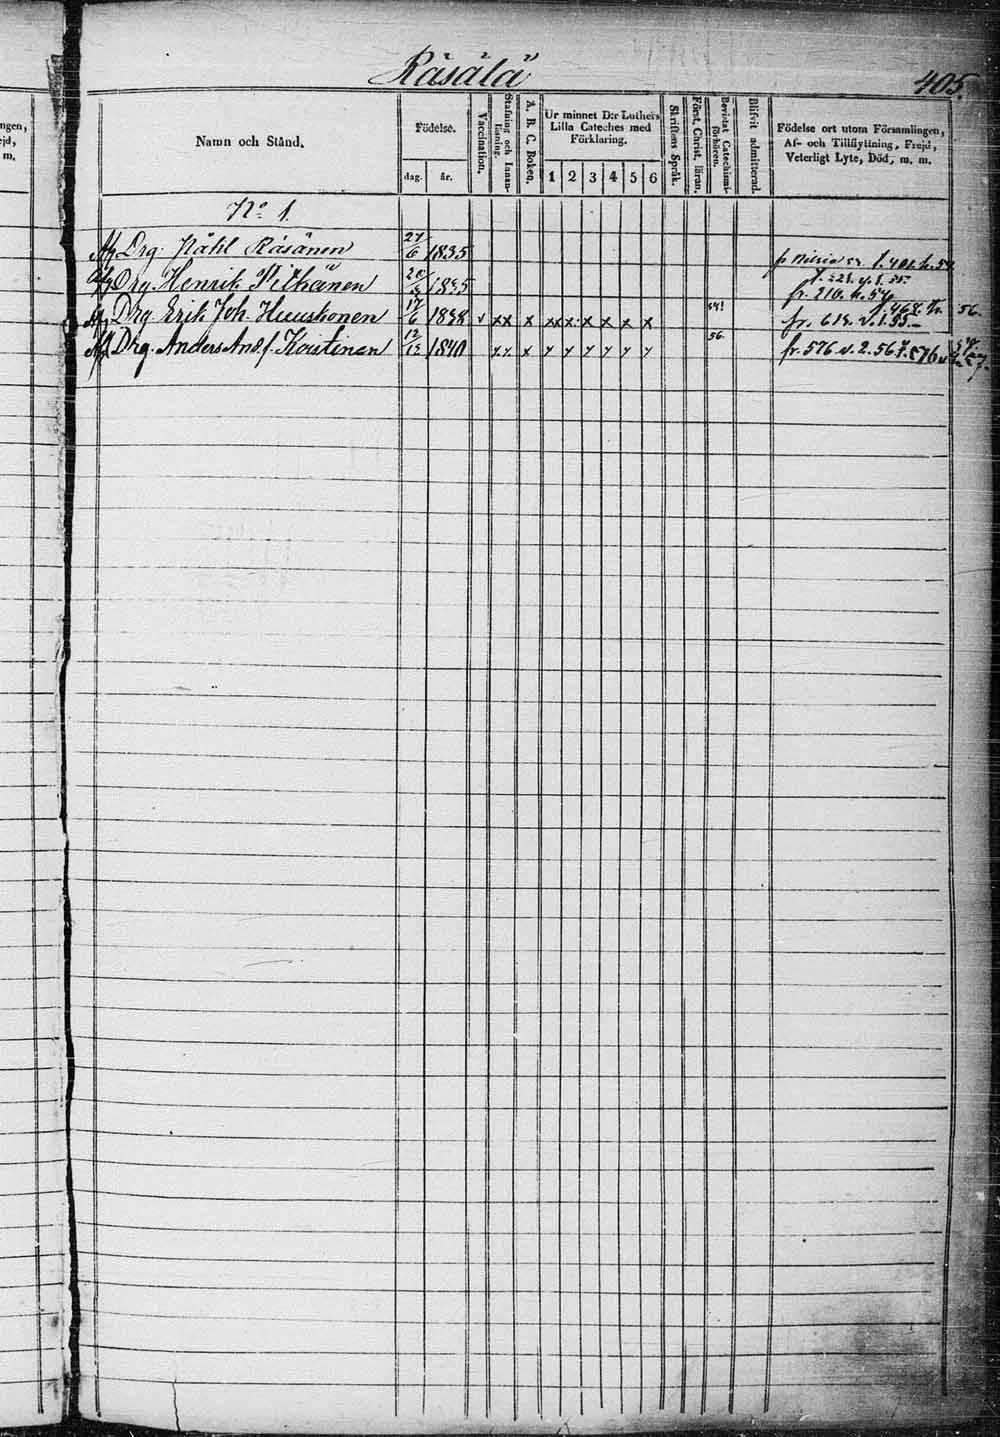 Räsälä
405.
ngen,
ejd,
m.
Namn och Stånd.
Födelse.
dag. år.
Vaccination.
Stafning och Innanläsning.
A. B. C. Boken.
Ur minnet D:r Luthers
Lilla Cateches med
Förklaring.
1 2 3 4 5 6
Skriftens Språk.
Först. Christ. läran.
Bevistat Catechismiförhören.
Blifvit admitterad.
Födelse ort utom Församlingen,
Af- och Tillflyttning, Frejd,
Veterligt Lyte, Död, m. m.
No 1.
Drg. Påhl Räsänen 27/6 1835 f. 401. h. 54
Drg. Henrik Pitkänen 1835
fr. 210. h. 54
Drg Erik Joh. Huuskonen 17/6 1838 v xx x xx x x x x x fr. 618. v. 1. 55. 56.
Drg. Anders And.f. Koistinen 12/12 1840 x x x y y y y y y 56. fr. 576 v. 2. 56 f. 576